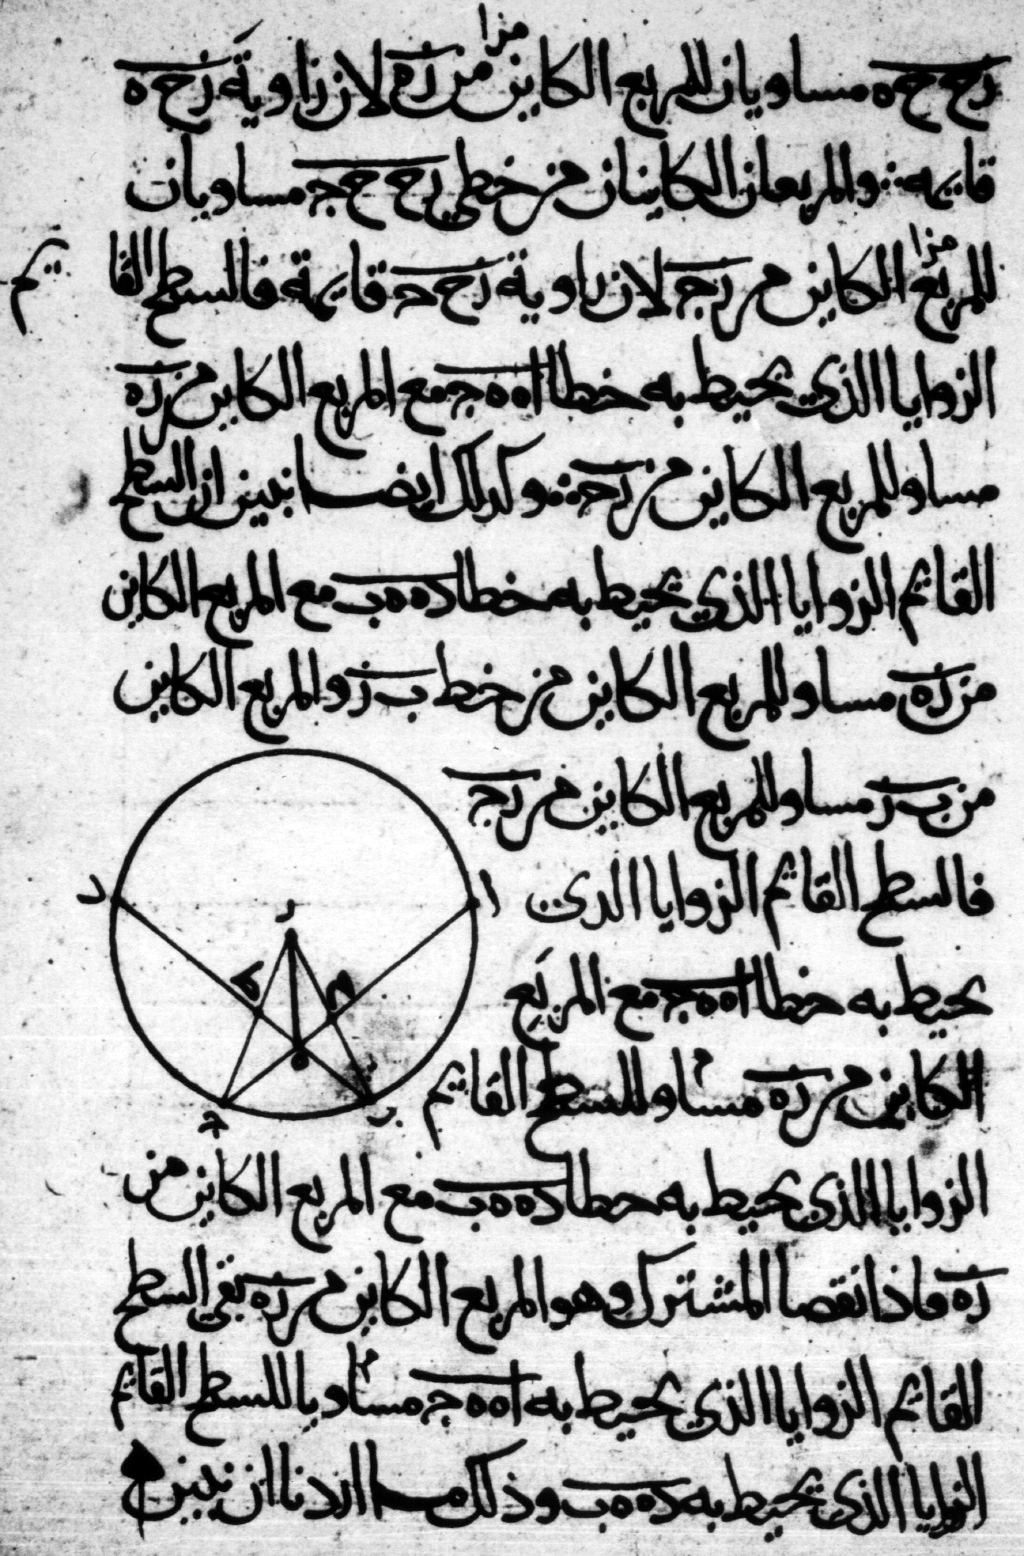 زح حه مساويان للمربع الكاين من زه لان زاوية زح ه
قايمه والمربعان الكاينان من خطي زح ح جـ مساويان
للمربع الكاين من زجـ لان زاوية زح جـ قايمة فالسطح القا
يم
الزوايا الذي يحيط به خطا اه ه جـ مع المربع الكاين من زه
مساو للمربع الكاين من زجـ وكذلك ايضا نبين ان السطح
القايم الزوايا الذي يحيط به خطا ده ه ب مع المربع الكاين
من زه مساو للمربع الكاين من خط ب ز والمربع الكاين
من ب ز مساو للمربع الكاين من زجـ
فالسطح القايم الزوايا الذى
يحيط به خطا اه ه جـ مع المربع
الكاين من زه مساو للسطح القايم
الزوايا الذي يحيط به خطا ده ه ب مع المربع الكاين من
زه فاذا نقصا المشترك وهو المربع الكاين من زه بقي السطح
القايم الزوايا الذي يحيط به اه ه جـ مساويا للسطح القايم
الزوايا الذي يحيط به ده ه ب وذلك ما اردنا ان نبين
د
ا
ز
ط
ح
ه
جـ
ب